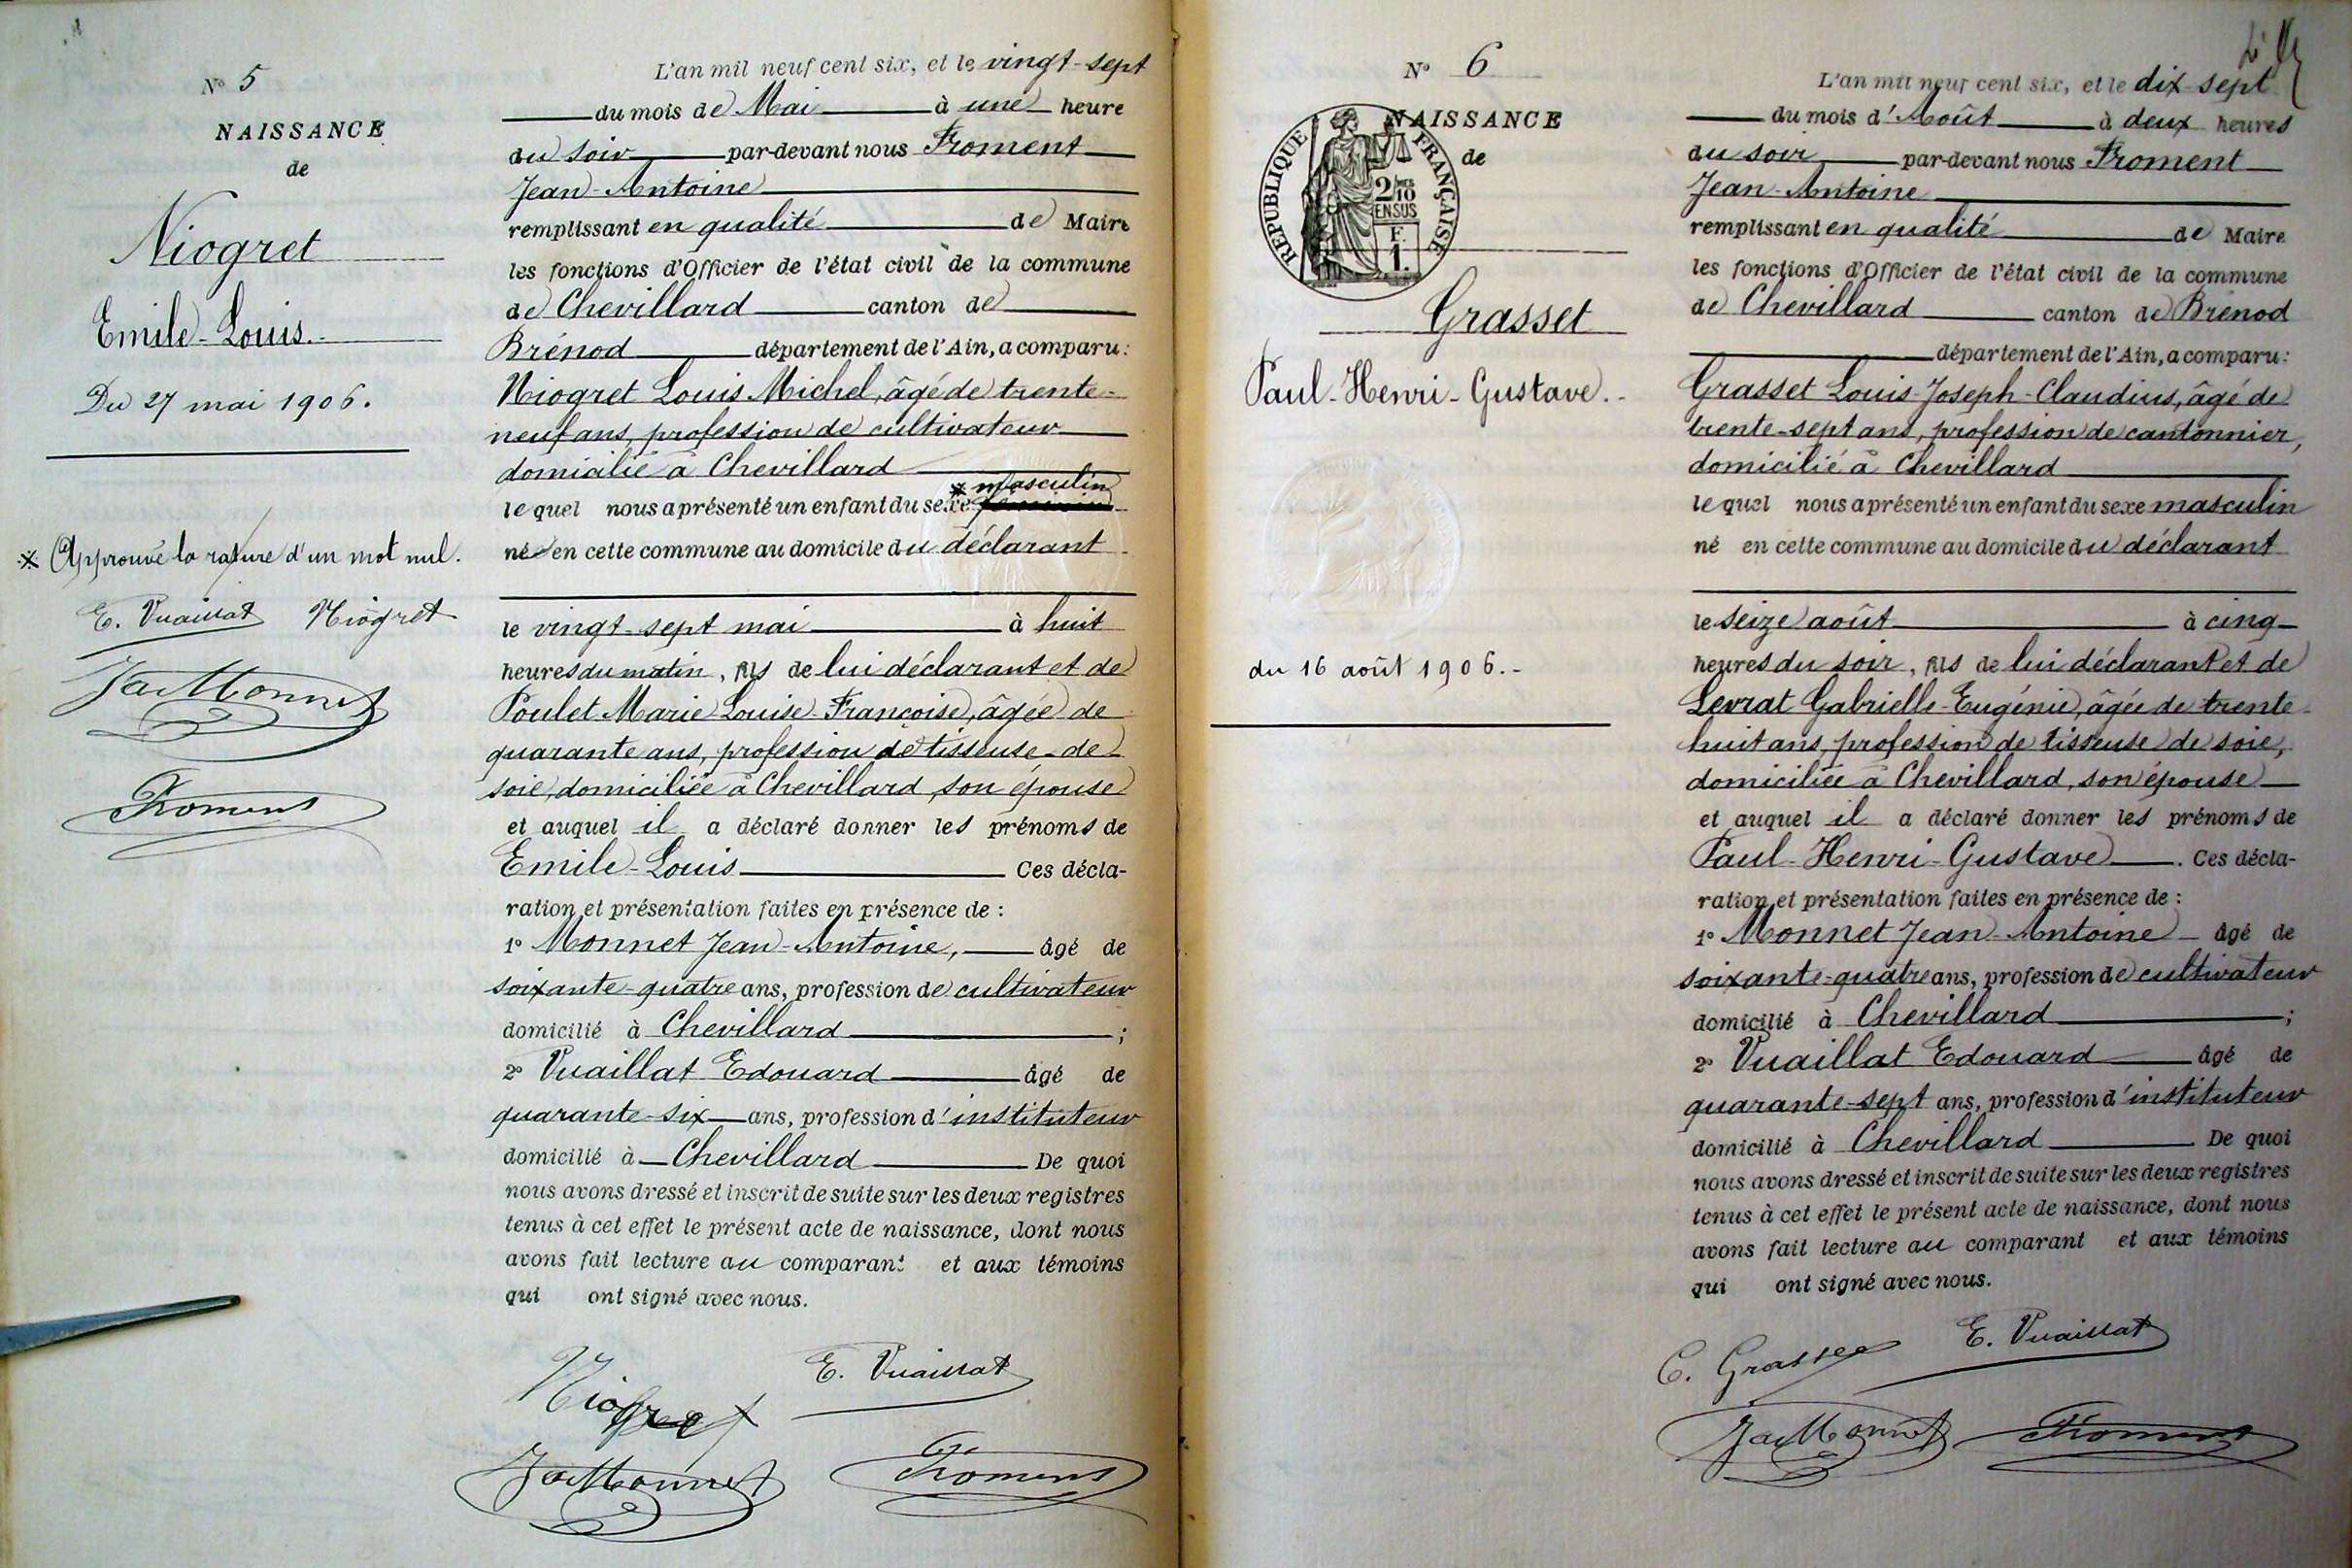 N° 5
NAISSANCE
de
Niogret
Emile-Louis.
Du 27 mai 1906.
* Approuvé la rature d'un mot nul.
E. Vuaillat Niogret
JaMonnet
Froment
L'an mil neuf cent six, et le vingt-sept
du mois de Mai à une heure
du soir par-devant nous Froment
Jean-Antoine
remplissant en qualité de Maire
les fonctions d'Officier de l'état civil de la commune
de Chevillard canton de
Brénod département de l'Ain, a comparu :
Niogret Louis Michel, âgé de trente-
neuf ans, profession de cultivateur
domicilié à Chevillard
* masculin
lequel nous a présenté un enfant du sexe
né en cette commune au domicile du déclarant
le vingt-sept mai à huit
heures du matin, fils de lui déclarant et de
Poulet Marie Louise Françoise, âgée de
quarante ans, profession de tisseuse de
soie, domiciliée à Chevillard, son épouse
et auquel il a déclaré donner les prénoms de
Emile-Louis Ces décla-
ration et présentation faites en présence de :
1° Monnet Jean-Antoine, âgé de
soixante-quatre ans, profession de cultivateur
domicilié à Chevillard ;
2° Vuaillat Edouard âgé de
quarante-six ans, profession d'instituteur
domicilié à Chevillard De quoi
nous avons dressé et inscrit de suite sur les deux registres
tenus à cet effet le présent acte de naissance, dont nous
avons fait lecture au comparant et aux témoins
qui ont signé avec nous.
Niogret E. Vuaillat
JaMonnet Froment
N° 6
NAISSANCE
de
RÉPUBLIQUE FRANÇAISE
2/10
EN SUS
F.
1.
Grasset
Paul-Henri-Gustave.
du 16 août 1906.
L'an mil neuf cent six, et le dix-sept
du mois d'Août à deux heures
du soir par-devant nous Froment
Jean-Antoine
remplissant en qualité de Maire
les fonctions d'Officier de l'état civil de la commune
de Chevillard canton de Brénod
département de l'Ain, a comparu :
Grasset Louis-Joseph-Claudius, âgé de
trente-sept ans, profession de cantonnier,
domicilié à Chevillard
lequel nous a présenté un enfant du sexe masculin
né en cette commune au domicile du déclarant
le seize août à cinq
heures du soir, fils de lui déclarant et de
Levrat Gabrielle-Eugénie, âgée de trente-
huit ans, profession de tisseuse de soie,
domiciliée à Chevillard, son épouse
et auquel il a déclaré donner les prénoms de
Paul-Henri-Gustave. Ces décla-
ration et présentation faites en présence de :
1° Monnet Jean-Antoine âgé de
soixante-quatre ans, profession de cultivateur
domicilié à Chevillard ;
2° Vuaillat Edouard âgé de
quarante-sept ans, profession d'instituteur
domicilié à Chevillard De quoi
nous avons dressé et inscrit de suite sur les deux registres
tenus à cet effet le présent acte de naissance, dont nous
avons fait lecture au comparant et aux témoins
qui ont signé avec nous.
C. Grasset E. Vuaillat
JaMonnet Froment